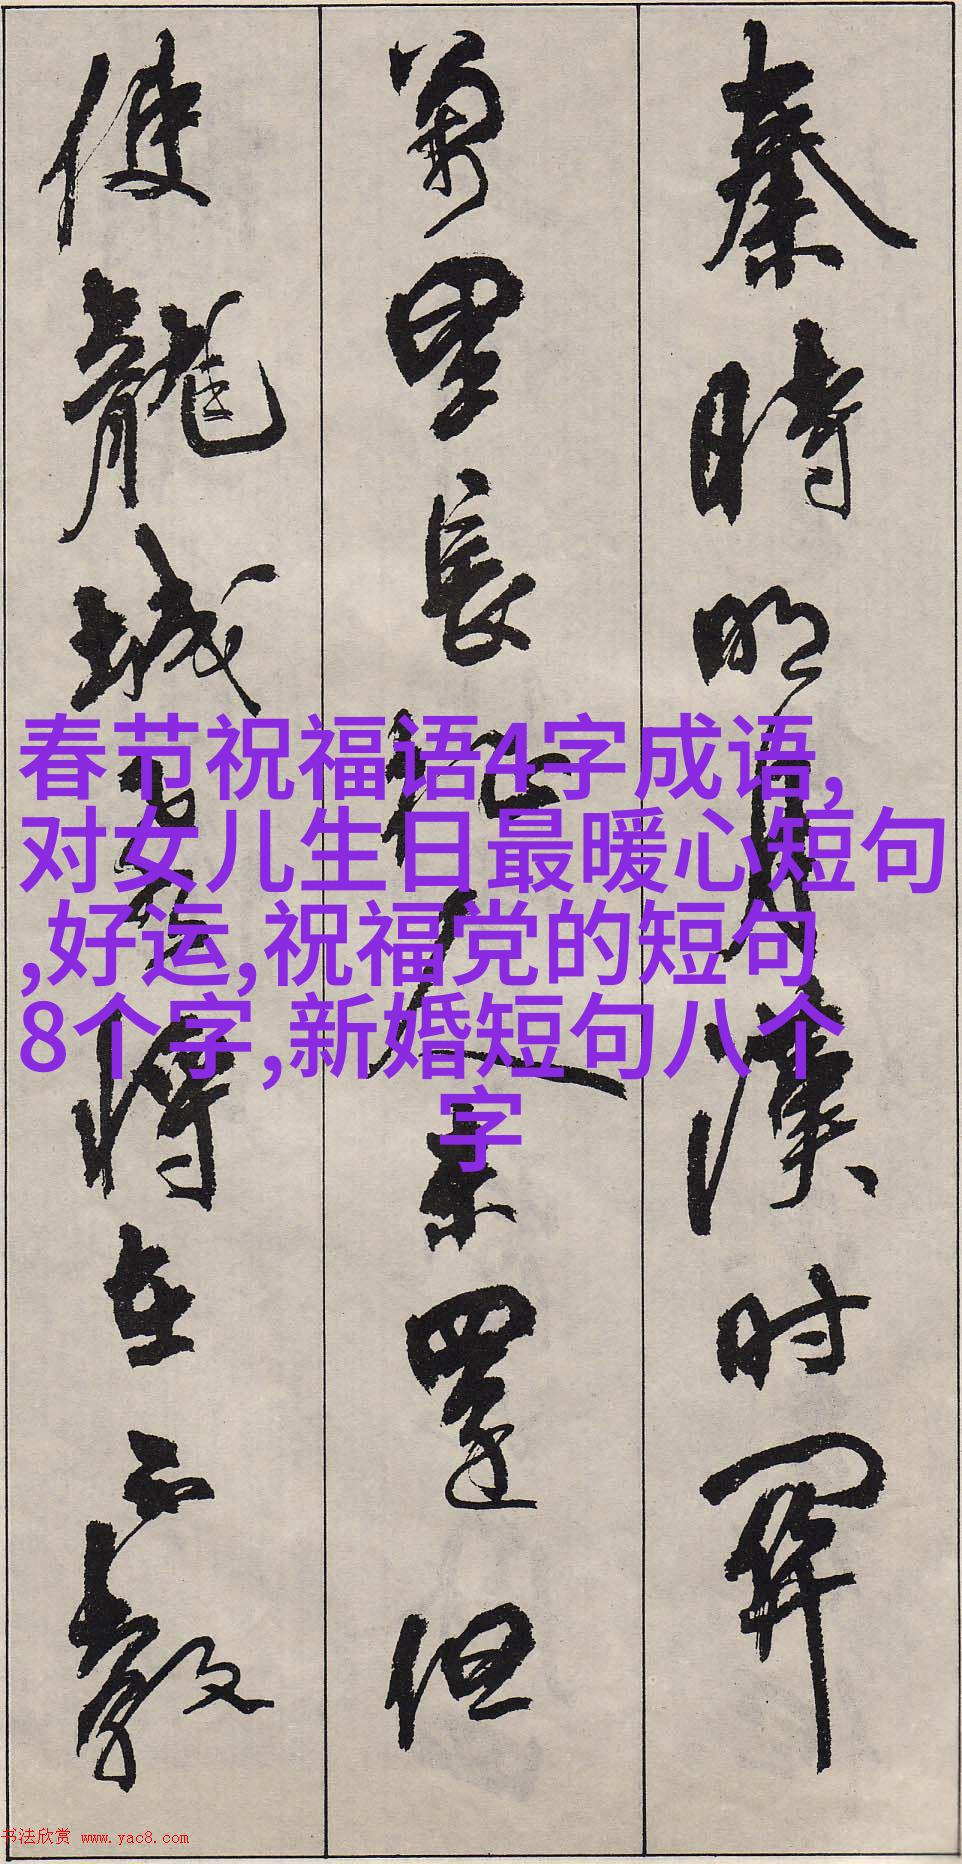 秦時明月漢时關
萬里長征人未還但
使龍城飛將在不教
春节祝福语4字成语,
对女儿生日最暖心短句
,好运,祝福党的短句
8个字,新婚短句八个
字
书法欣赏 www.yac8.com